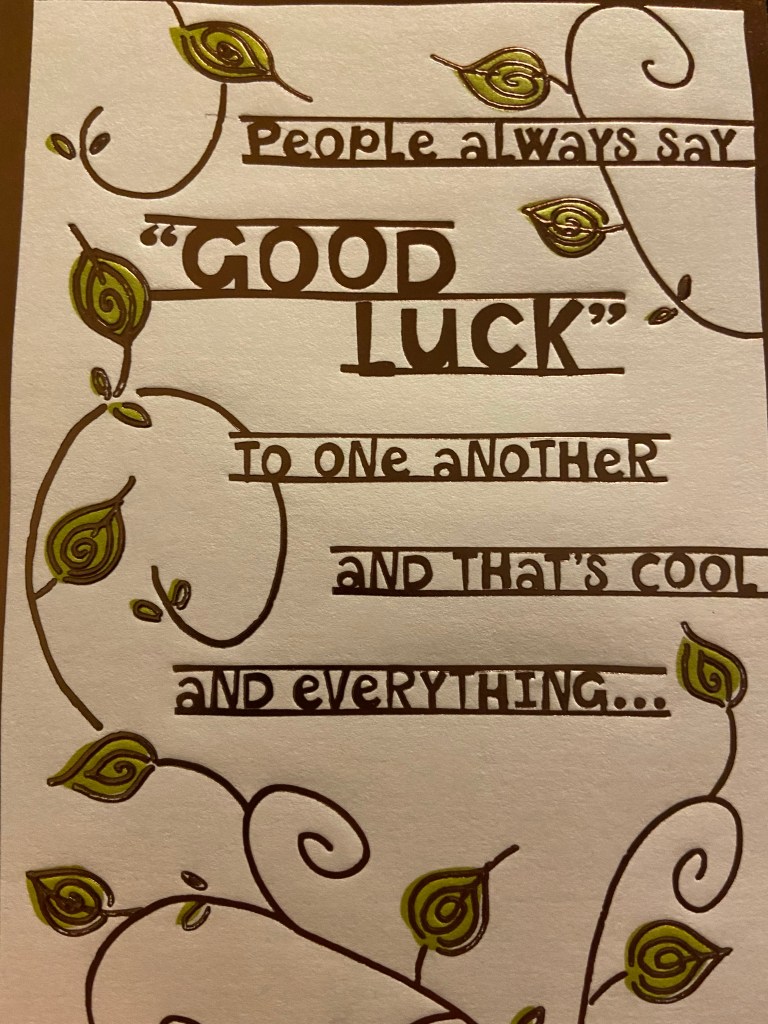 PeoPLe aLWaYS SaY
“GOOD
LUCK”
TO ONe aNOTHeR
aND THaT’S COOL
aND eVeRYTHING...